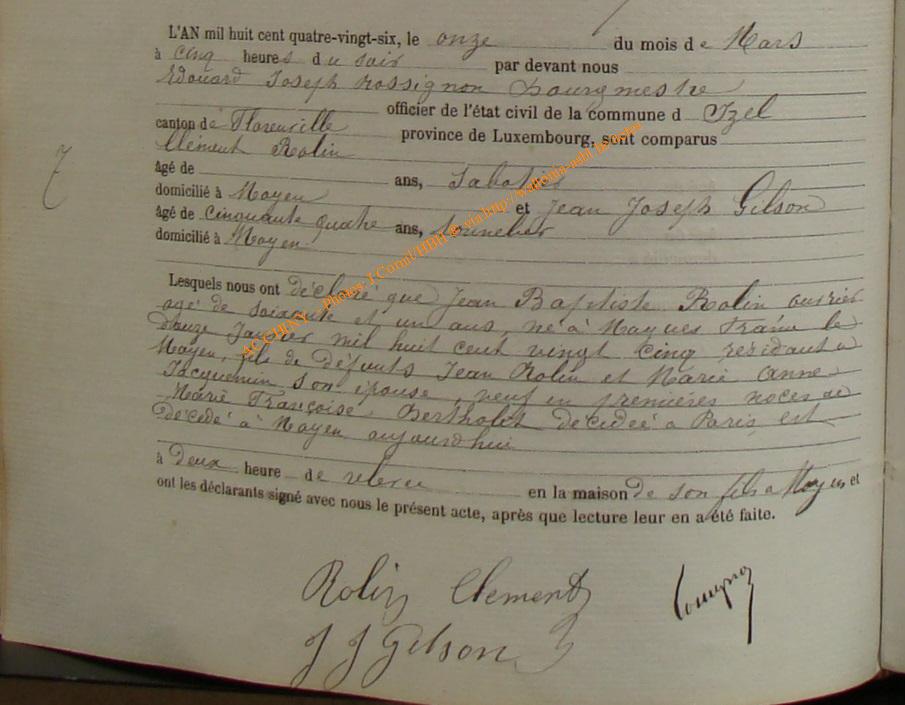 L'AN mil huit cent quatre-vingt-six, le onze du mois de Mars
à cinq heures du soir par devant nous
Edouard Joseph Rossignon Bourgmestre
officier de l'état civil de la commune d Izel
canton de Florenville province de Luxembourg, sont comparus
Clément Rolin
âgé de ans, Sabotier
domicilié à Moyen et Jean Joseph Gilson
âgé de cinquante quatre ans, tonnelier
domicilié à Moyen
7
Lesquels nous ont déclaré que Jean Baptiste Rolin ouvrier
agé de soixante et un ans, né à Moyen le
douze Janvier mil huit cent vingt cinq résidant à
Moyen, fils de défunts Jean Rolin et Marie Anne
Jacquemin son épouse, veuf en premières noces de
Marie Françoise Bertholet décédée à Paris, est
décédé à Moyen aujourdhui
à deux heure de relevee en la maison de son fils a Moyen et
ont les déclarants signé avec nous le présent acte, après que lecture leur en a été faite.
Rolin Clement
J J Gilson
ACCHLNY - Photos J Comil HBH @ via http://wallonia-asbl